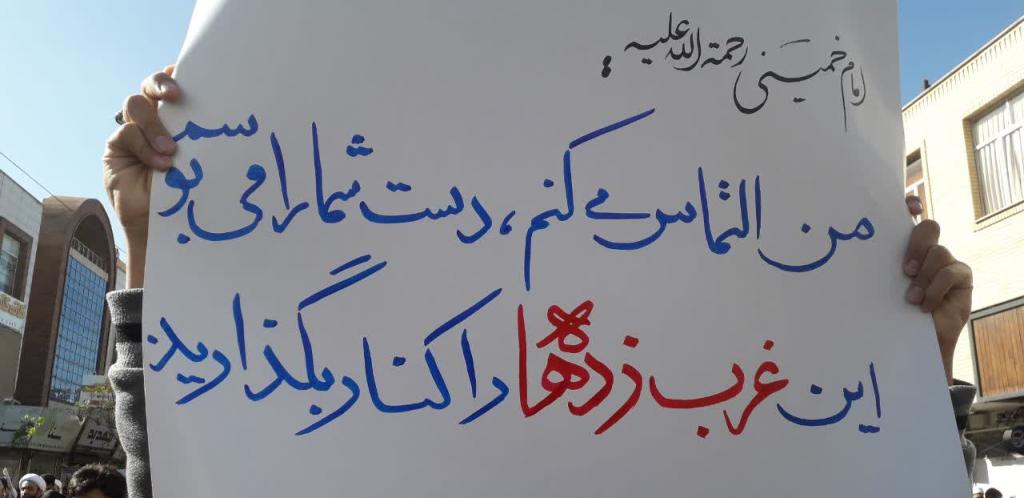 امام خمینی رحمة الله علیه:
من التماس می کنم، دست شما را می بوسم
این غرب زده ها را کنار بگذارید